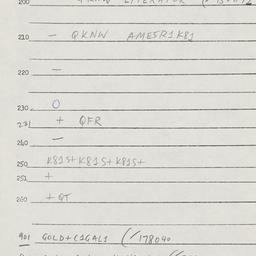 200
210 — QKNW AMESR1K81
220 —
230 O
231 + QFR
240 —
250 K81S+K81S+K81S+
251 +
260 + QT
401 GOLD+C1GAL1 (/178040